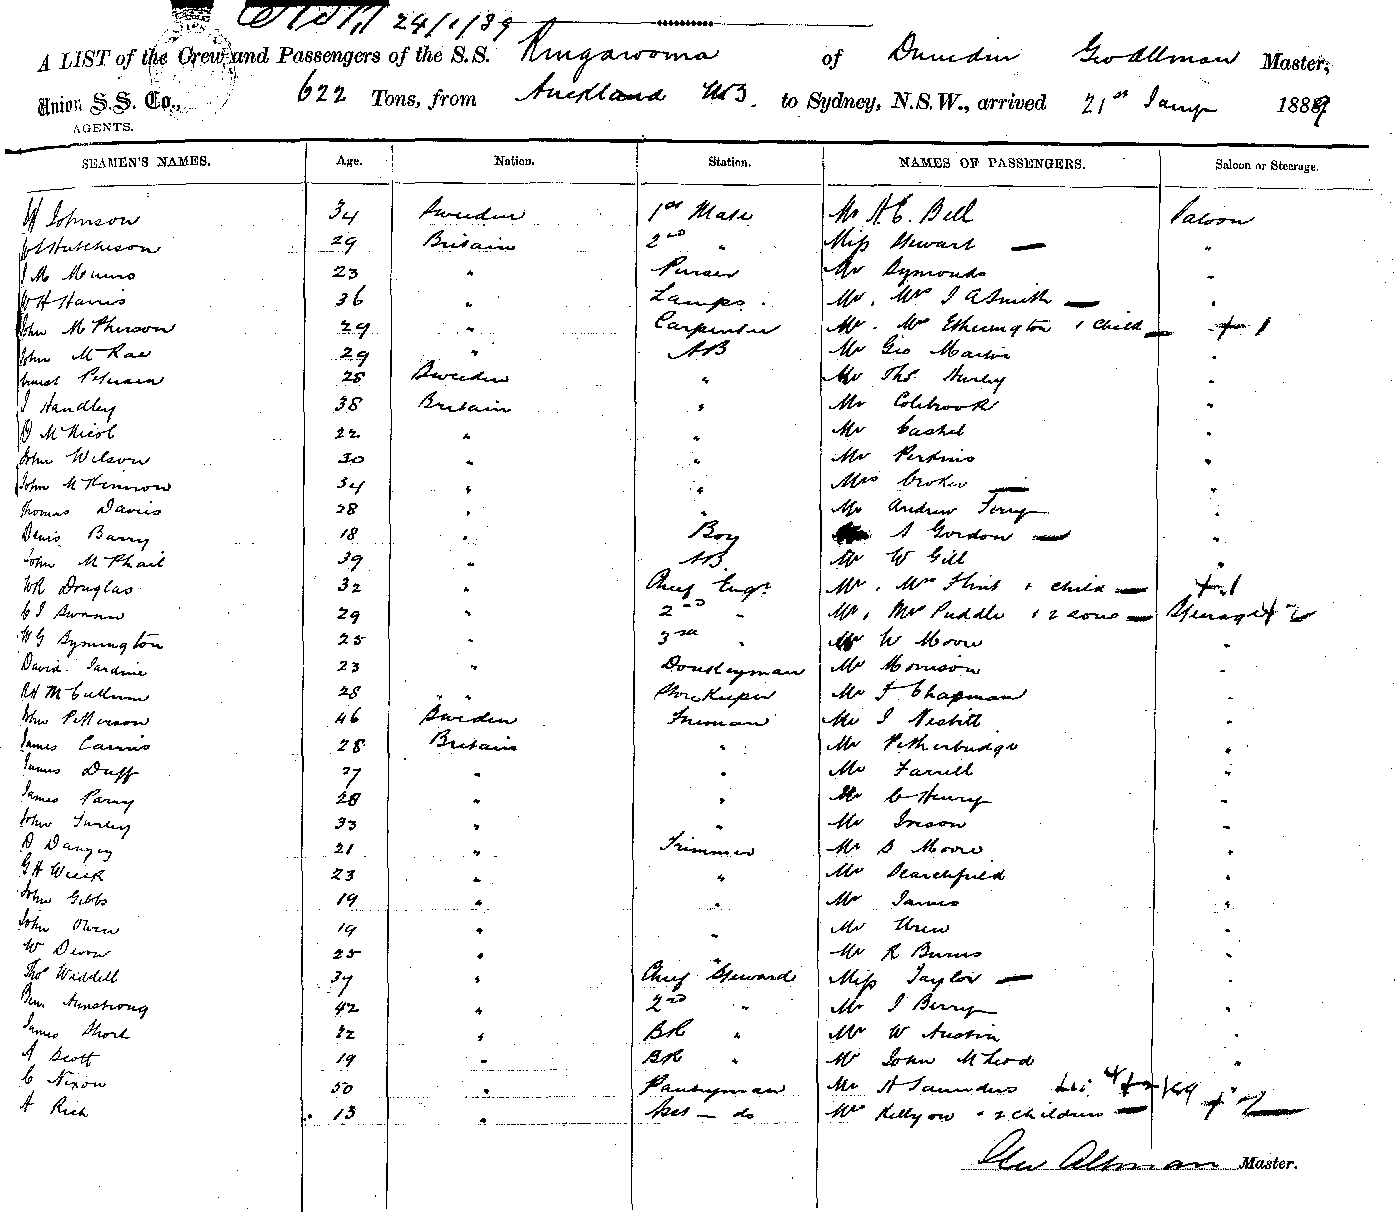 24/1/89
A LIST of the Crew and Passengers of the S.S. Ringarooma of Dunedin Geo Allman Master,
Union S.S. Co., 622 Tons, from Auckland NZ. to Sydney, N.S.W., arrived 21st Jany 1889
AGENTS.
SEAMEN'S NAMES. Age. Nation. Station. NAMES OF PASSENGERS. Saloon or Steerage.
Johnson 34 Sweden 1st Mate Mr H E. Bell Saloon
Hutchison 29 Britain 2nd " Miss Stewart — "
J M Munro 23 " Purser Mr Symonds "
W H Harris 36 " Lamps. Mr. Mrs J A Smith — "
John McPherson 29 " Carpenter Mr. Mrs Etherington & child — + 1
John McRae 29 " AB Mr Geo Martin "
Petersen 28 Sweden " Mr Thos Hurley "
J Handley 38 Britain " Mr Colebrook "
D McNicol 22 " " Mr Cashel "
John Wilson 30 " " Mr Perkins "
John McKinnon 34 " " Mrs Croker — "
Thomas Davies 28 " " Mr Andrew Terry "
Denis Barry 18 " Boy A Gordon — "
John McPhail 39 " AB Mr W Gill "
W R Douglas 32 " Chief Engr Mr. Mrs Flint & child — + 1
C J Swann 29 " 2nd " Mr. Mrs Puddle & 2 sons — Steerage + 2
W G Symington 25 " 3rd " Mr W Moore "
David Jardine 23 " Donkeyman Mr Morrison "
McCallum 28 " " Storekeeper Mr F Chapman "
John Petterson 46 Sweden Fireman Mr J Nesbitt "
James Cairns 28 Britain " Mr Petherbridge "
James Duff 27 " " Mr Farrell "
James Parry 28 " " Mr C Henry "
John Turley 33 " " Mr Irison "
D Dangey 21 " Trimmer Mr S Moore "
G H Weeck 23 " " Mr Searchfield "
John Gibbs 19 " " Mr James "
John Owen 19 " " Mr Uren "
W Devon 25 " " Mr R Burns "
Thos Waddell 37 " Chief Steward Miss Taylor — "
Benn Armstrong 42 " 2nd " Mr J Berry "
James Short 22 " BR " Mr W Austin "
A Scott 19 " BR " Mr John McLeod "
C Nixon 50 " Pantryman Mr H Saunders
A Rich 13 " Asst — do Mrs Kellyon & 2 children — + 2
Geo Allman Master.